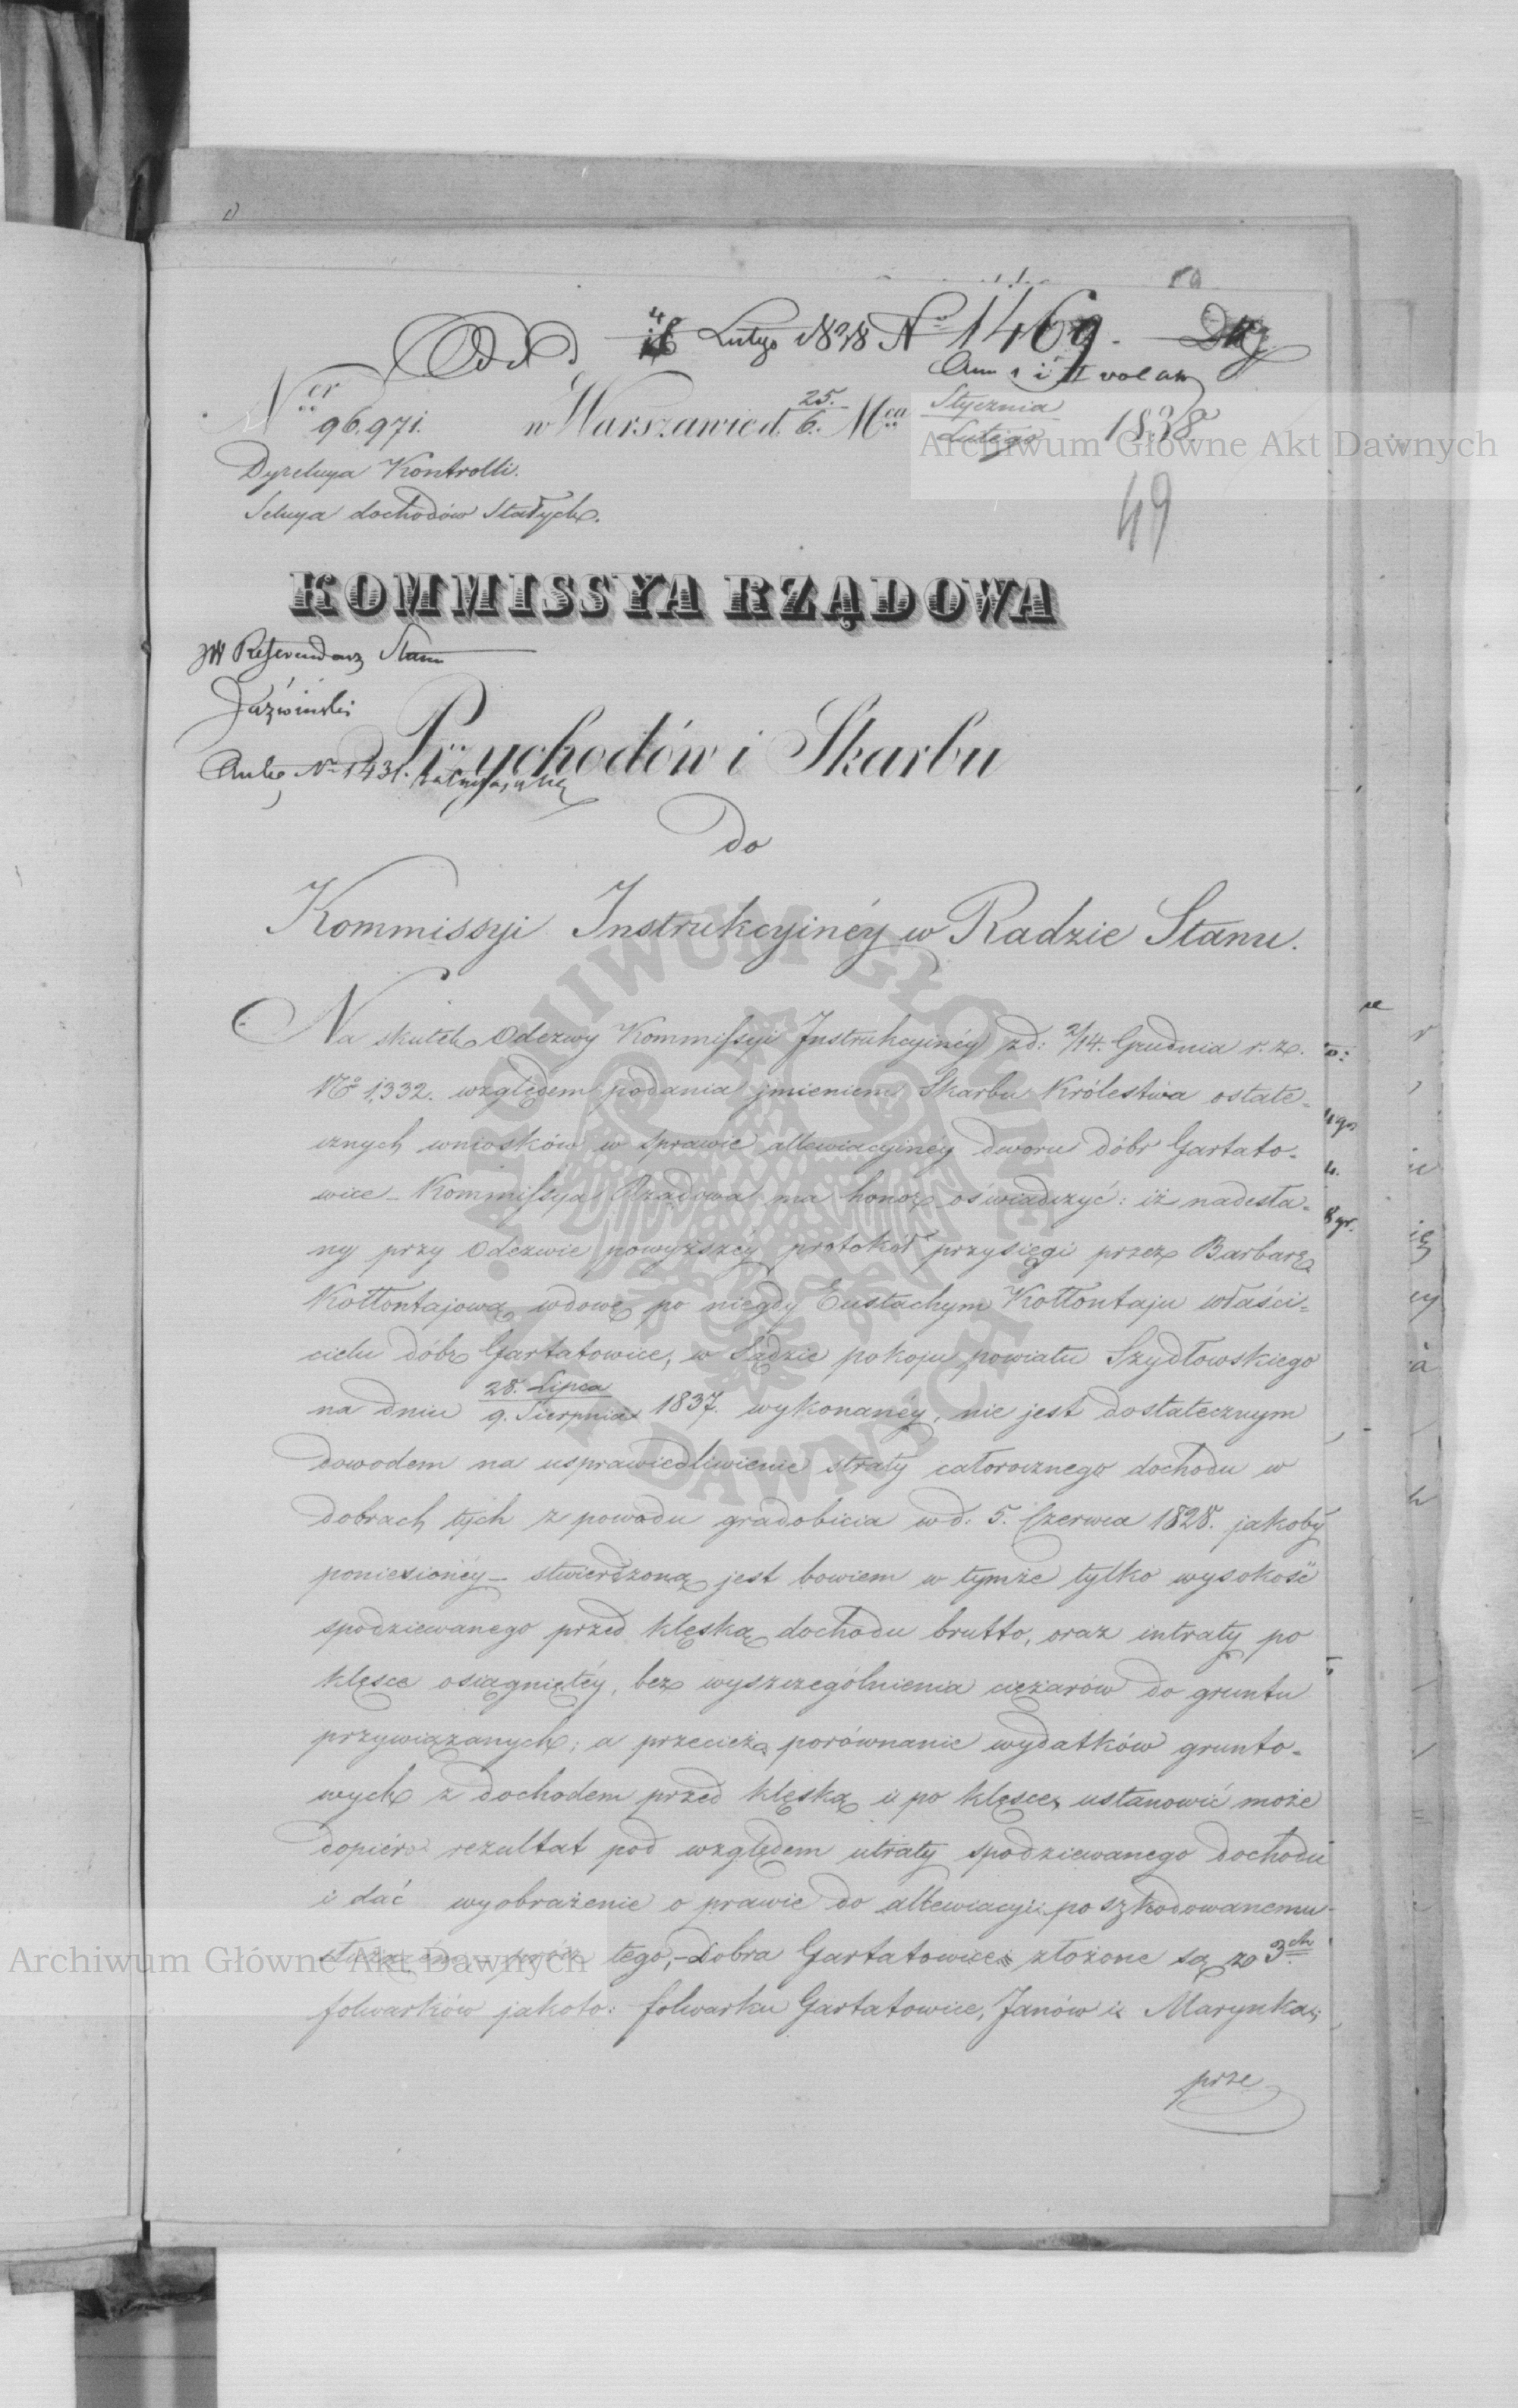 Odd 4/16 Lutego 1838 Nº 1469.
Nr 96.971. w Warszawie d. 25./6. Mca Stycznia/Lutego 1838
Archiwum Główne Akt Dawnych
Dyrekcya Kontrolli.
Sekcya dochodów Stałych.
49
KOMMISSYA RZĄDOWA
JW Referendarz Stanu
Przychodów i Skarbu
Nº 1431.
Do
Kommissyi Instrukcyinéy w Radzie Stanu.
Na skutek Odezwy Kommissyi Instrukcyinéy z d: 2/14. Grudnia r. z.
Nº 1,332. względem podania jmieniem Skarbu Królestwa ostate-
cznych wniosków w sprawie allewiacyinéy dworu dóbr Gartato-
wice – Kommissya Rządowa ma honor oświadczyć: iż nadesła-
ny przy Odezwie powyższéy protokół przysięgi przez Barbarę
Kołłontajową wdowę po niegdy Eustachym Kołłontaju właści-
cielu dóbr Gartatowice, w Sądzie pokoju powiatu Szydłowskiego
na dniu 28. Lipca/9. Sierpnia 1837. wykonanéy, nie jest dostatecznym
dowodem na usprawiedliwienie straty całorocznego dochodu w
dobrach tych z powodu gradobicia w d: 5. Czerwca 1828. jakoby
poniesionéy – stwierdzoną jest bowiem w tymże tylko wysokość
spodziewanego przed klęską dochodu brutto, oraz intraty po
klęsce osiągniętéy, bez wyszczególnienia ciężarów do gruntu
przywiązanych; a przecież porównanie wydatków grunto-
wych z dochodem przed klęską i po klęsce, ustanowić może
dopiéro rezultat pod względem utraty spodziewanego dochodu
i dać wyobrażenie o prawie do allewiacyi poszkodowanemu
Archiwum Główne Akt Dawnych
tego, – Dobra Gartatowice złożone są z 3ch
folwarków jakoto: folwarku Gartatowice, Janów i Marynka;
prze
ARCHIWUM GŁÓWNE AKT DAWNYCH